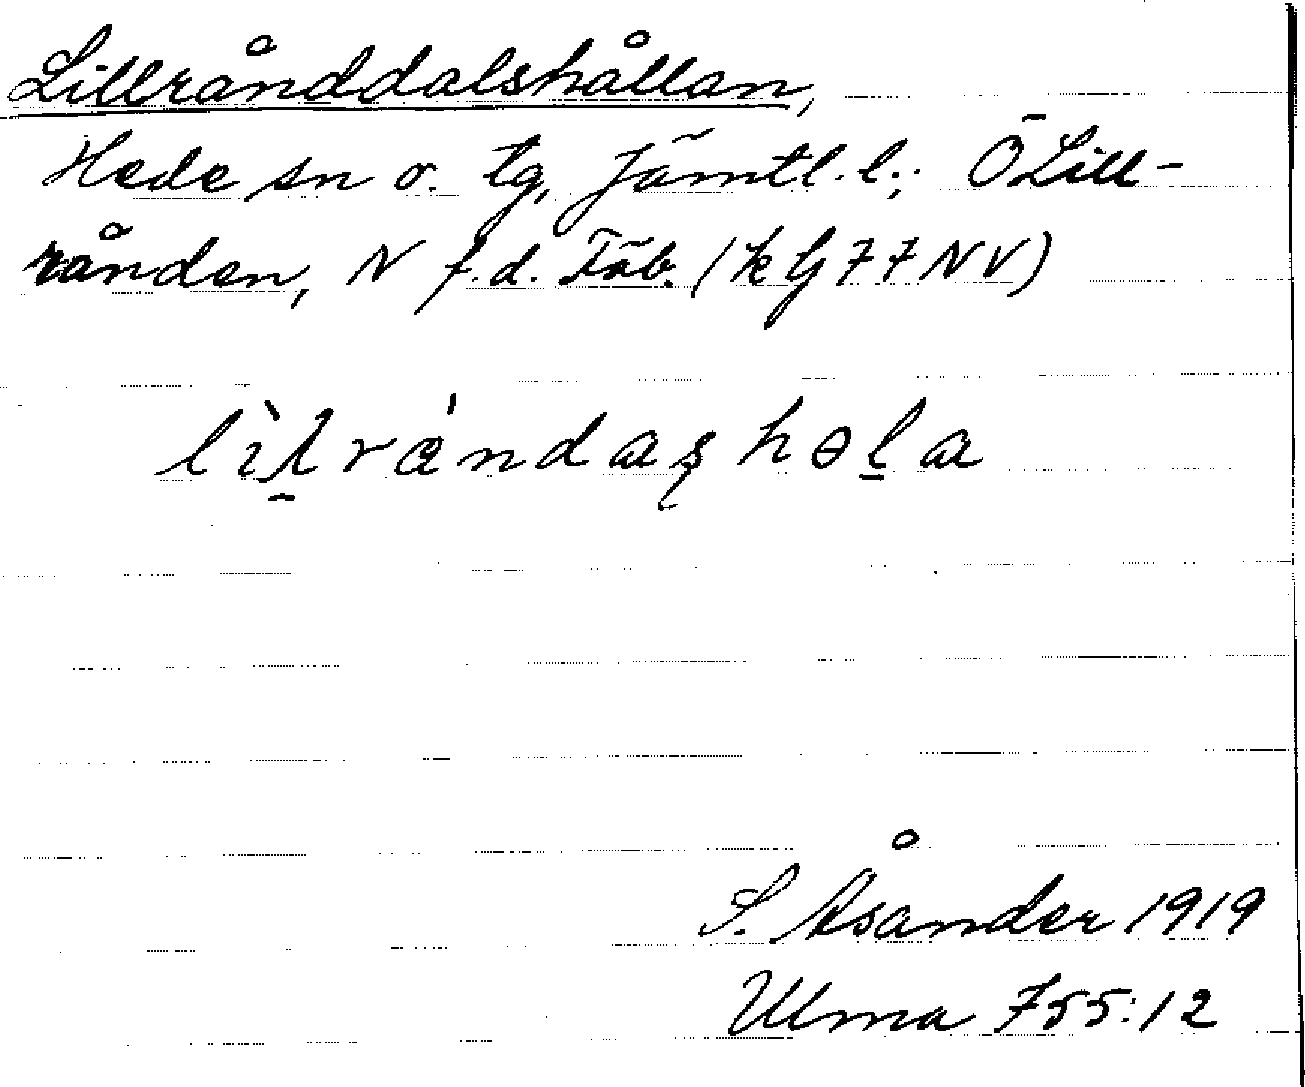 Lillrånddalshållan,
Hede sn o. tg, Jämtl. l.; Ö Lill-
rånden, N f.d. Fäb. (kG77NV)
lìlråndashola
S. Åsander 1919
Ulma 755:12